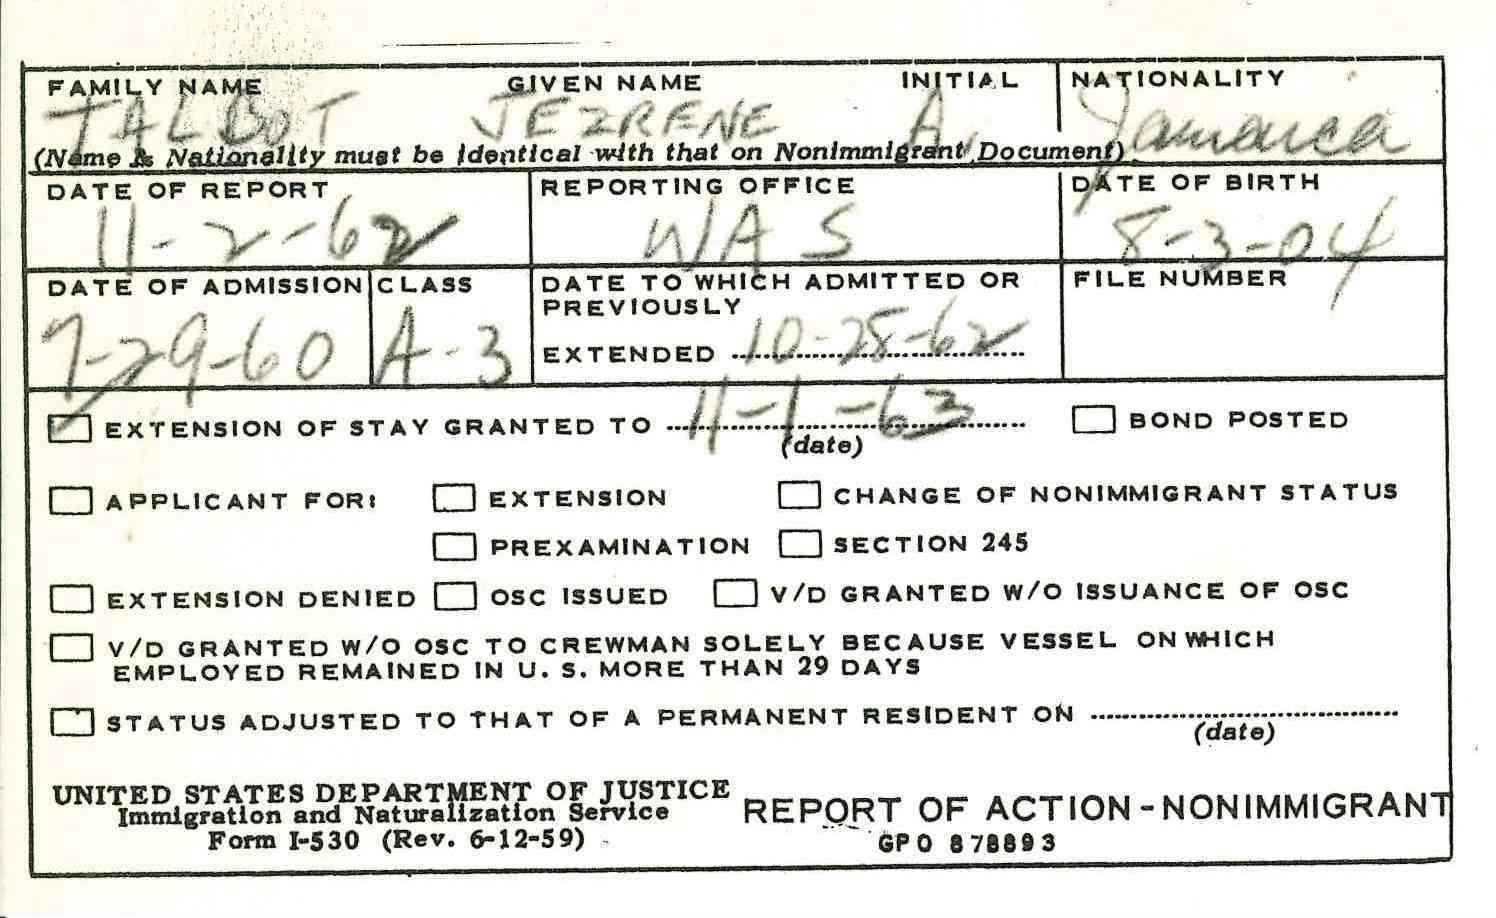 FAMILY NAME GIVEN NAME INITIAL NATIONALITY
TALBOT JEZRENE A. Jamaica
(Name & Nationality must be identical with that on Nonimmigrant Document)
DATE OF REPORT REPORTING OFFICE DATE OF BIRTH
11-2-62 WAS 8-3-04
DATE OF ADMISSION CLASS DATE TO WHICH ADMITTED OR FILE NUMBER
PREVIOUSLY
7-29-60 A-3 EXTENDED 10-28-62
EXTENSION OF STAY GRANTED TO 11-1-63 BOND POSTED
(date)
APPLICANT FOR: EXTENSION CHANGE OF NONIMMIGRANT STATUS
PREXAMINATION SECTION 245
EXTENSION DENIED OSC ISSUED V/D GRANTED W/O ISSUANCE OF OSC
V/D GRANTED W/O OSC TO CREWMAN SOLELY BECAUSE VESSEL ON WHICH
EMPLOYED REMAINED IN U. S. MORE THAN 29 DAYS
STATUS ADJUSTED TO THAT OF A PERMANENT RESIDENT ON
(date)
UNITED STATES DEPARTMENT OF JUSTICE
Immigration and Naturalization Service REPORT OF ACTION - NONIMMIGRANT
Form I-530 (Rev. 6-12-59) GPO 878893